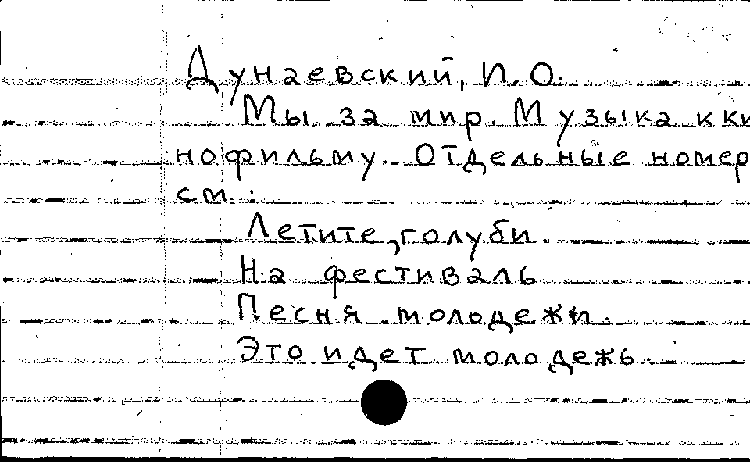 Дунаевский, И.О.
Мы за мир. Музыка к ки
нофильму. Отдельные номер
см.:
Летите, голуби.
На фестиваль
Песня молодежи.
Это идет молодежь.